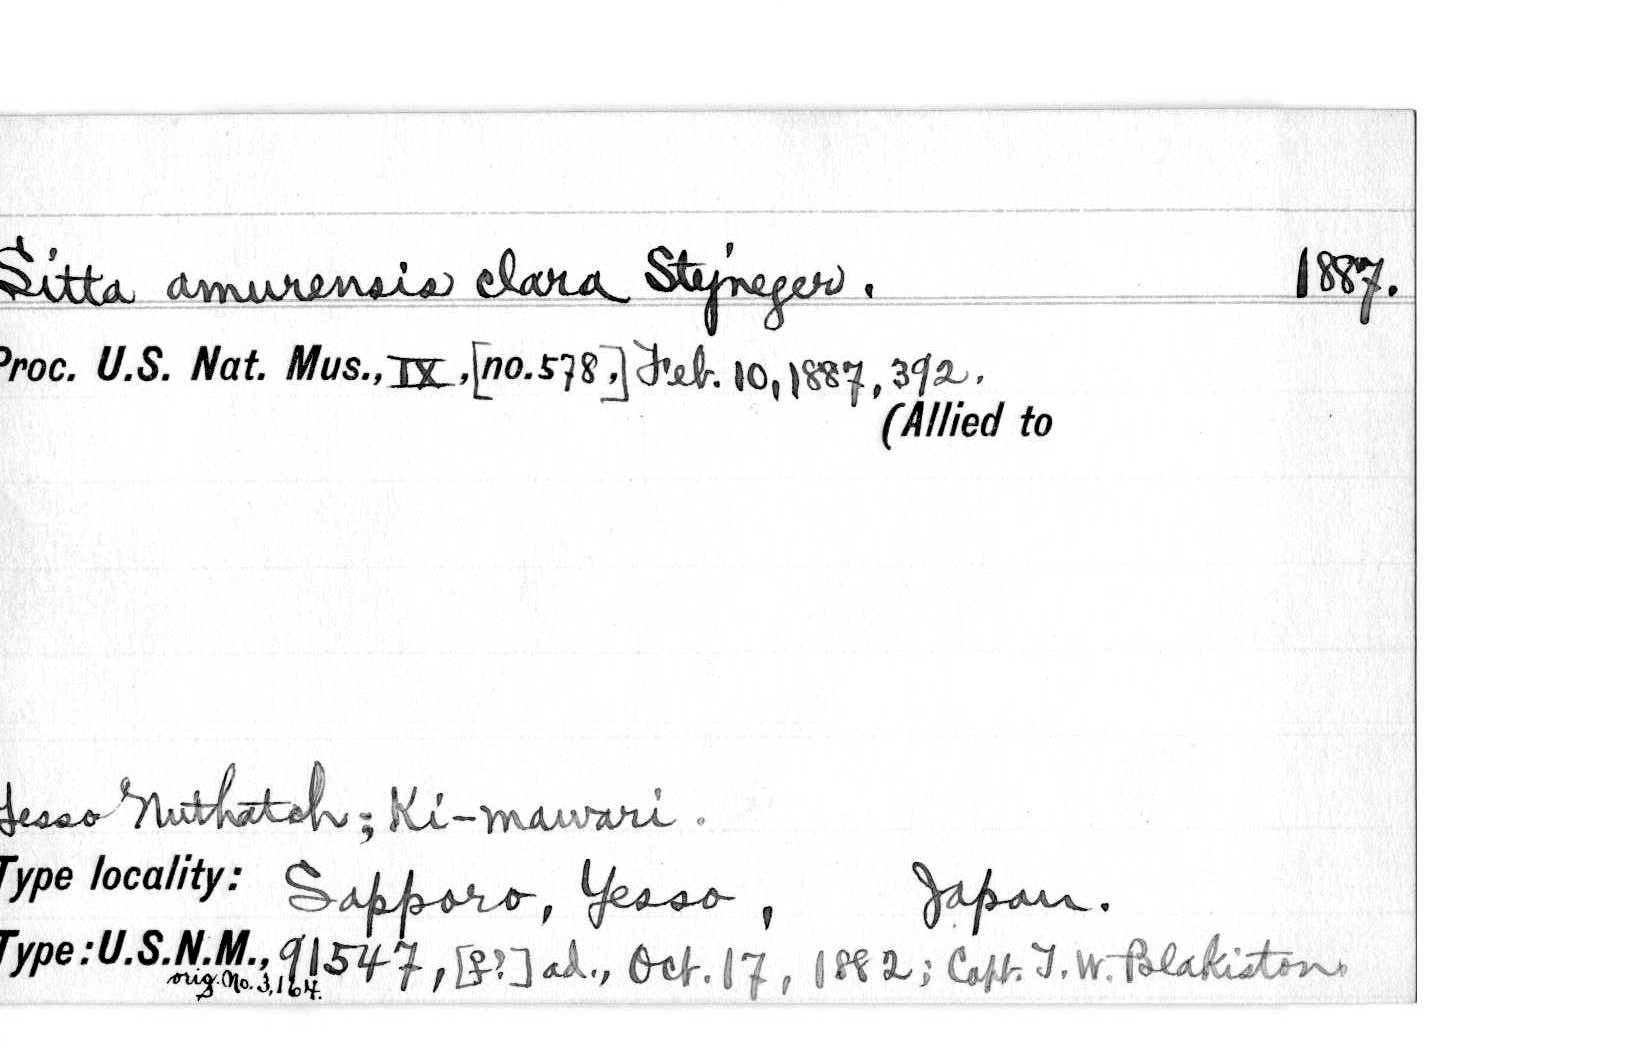 Sitta amurensis clara Stejneger. 1887.
Proc. U.S. Nat. Mus., IX, [no. 578,] Feb. 10, 1887, 392.
(Allied to
Yesso Nuthatch; Ki-mawari.
Type locality: Sapporo, Yesso, Japan.
Type: U.S.N.M., 91547, [♀?] ad., Oct. 17, 1882; Capt. T. W. Blakiston.
orig. No. 3,164.